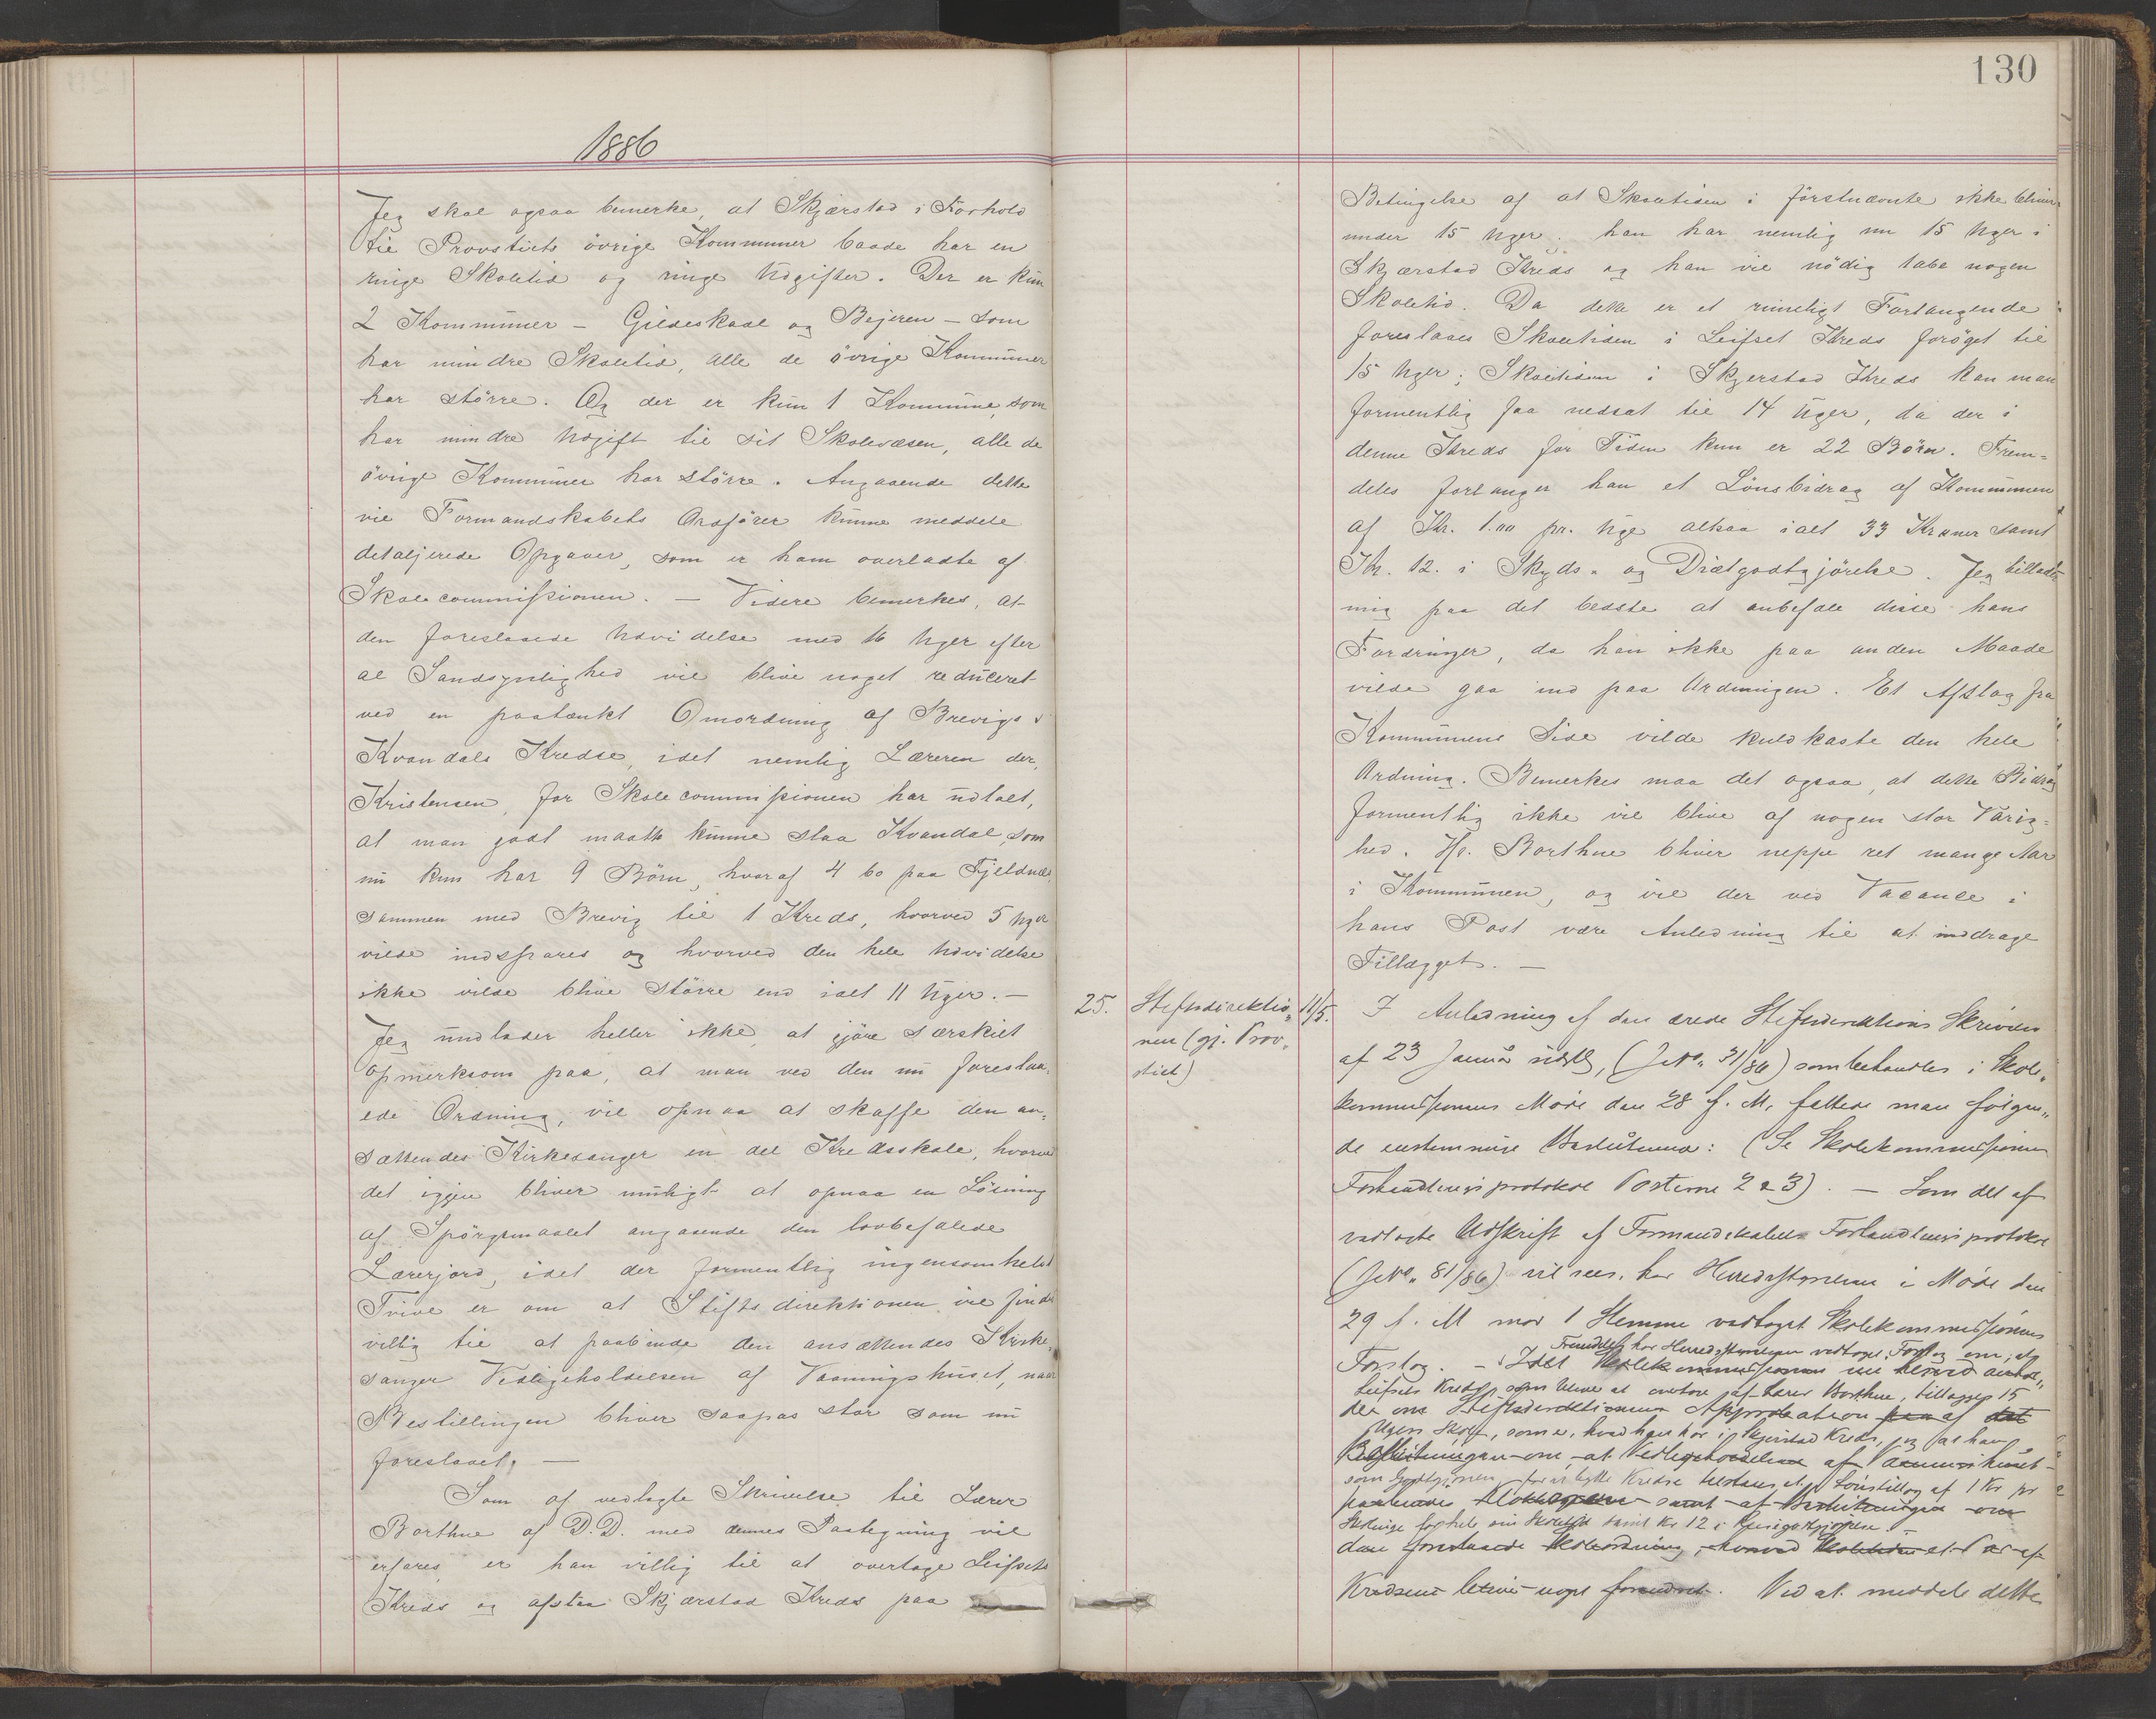 1886
Jeg skal ogsaa bemerke, at Skjærstad i Forhold
til Provstiets övrige Kommuner baade har en
ringe Skoletid og ringe Udgifter. Der er kun
2 Kommuner - Gildeskaal og Bejeren - som
har mindre Skoletid, alle de övrige Kommuner
har större. Og der er kun 1 Kommune, som
har mindre Udgift til sit Skolevæsen, alle de
övrige Kommuner har större. Angaaende dette
vil Formandskabets Ordförer kunne meddele
detaljerede Opgaver, som er ham overladte af
Skolecommissionen. - Videre bemerkes, at
den foreslaaede Udvidelse med 16 Uger efter
al Sandsynlighed vil blive noget reduceret
ved en paatænkt Omordning af Brevigs &
Kvandals Kredse, idet nemlig Læreren der,
Kristensen, for Skolecommissionen har udtalt,
at man godt maatte kunne slaa Kvandal, som
nu kun har 9 Börn, hvoraf 4 bo paa Fjeldnæs,
sammen med Brevig til 1 Kreds, hvorved 5 Uger
vilde indspares og hvorved den hele Udvidelse
ikke vilde blive större end ialt 11 Uger. -
Jeg undlader heller ikke at gjöre særskilt
opmerksom paa, at man ved den nu foreslaa-
ede Ordning, vil opnaa at skaffe den an-
sættendes Kirkesanger en del Kredsskole, hvorved
det igjen bliver muligt at opnaa en Lösning
af Spörgsmaalet angaaende den lovbefalede
Lærerjord, idet der formentlig ingensomhelst
Tvivl er om at Stiftsdirektionen vil finde
villig til at paabinde den ansættendes Kirke-
sanger Vedligeholdelsen af Vaaningshuset, naar
Bestillingen bliver saapas stor som nu
foreslaaet. -
Som af vedlagte Skrivelse til Lærer
Borthne af D.D. med dennes Paategning vil
erfares, er han villig til at overtage Leifsets
Kreds og afstaa Skjærstad Kreds paa
130
Betingelse af at Skoletiden i förstnævnte ikke bliver
under 15 Uger; han har nemlig nu 15 Uger i
Skjærstad Kreds og han vil nödig tabe nogen
Skoletid. Da dette er et rimeligt Forlangende
foreslaaes Skoletiden i Leifset Kreds foröget til
15 Uger; Skoletiden i Skjerstad Kreds kan man
formentlig faa nedsat til 14 Uger, da der i
denne Kreds for Tiden kun er 22 Börn. Frem-
deles forlanger han et Lönsbidrag af Kommunen
af Kr. 1.00 pr. Uge altsaa ialt 33 Kroner samt
Kr. 12. i Skyds- og Diætgodtgjörelse. Jeg tillader
mig paa det bedste at anbefale disse hans
Fordringer, da han ikke paa anden Maade
vilde gaa ind paa Ordningen. Et Afslag fra
Kommunens Side vilde kuldkaste den hele
Ordning. Bemerkes maa det ogsaa, at dette Bidrag
formentlig ikke vil blive af nogen stor Varig-
hed. Hr. Borthne bliver neppe ret mange Aar
i Kommunen, og vil der ved Vacance i
hans Post være Anledning til at inddrage
Tillægget. -
25. Stiftsdirektio- 11/5. I Anledning af den ærede Stiftsdirektions Skrivelse
nen (gj. Prov-
stiet)
af 23 Januar sidstl, (J.No. 31/86) som behandles i Skole-
kommissionens Möde den 28 f. M, fattede man fölgen-
de enstemmige Beslutning: (Se Skolekommissionens
Forhandlingsprotokol Posterne 2 & 3). - Som det af
vedlagte Udskrift af Formandskabets Forhandlingsprotokol
(J.No. 81/86) vil sees, har Herredsstyrelsen i Möde den
29 f. M mod 1 Stemme vedtaget Skolekommissionens
Fremdeles har Herredsstyrelsen vedtaget Forslag om, at
Forslag. - Idet Skolekommissionen nu herved anhol-
Leifsets Kreds, som bliver at overtage af Lærer Borthne, tillægges 15
der om Stiftsdirektionens Approbation paa af det
Ugers Skole, som er, hvad han har i Skjerstad Kreds, og at han
Beslutningen om, at Vedligeholdelsen af Vaaningshuset
som Godtgjörelse for at bytte Kredse tilstaaes et Lönstillæg af 1 Kr pr
paabindes samt af Beslutningen om
Skoleuge for hele sin Skoletid samt Kr 12 i Reisegodtgjörelse. -
den foreslaaede Skoleordning, hvorved et Par af
Kredsene bliver noget forandret. Ved at meddele dette